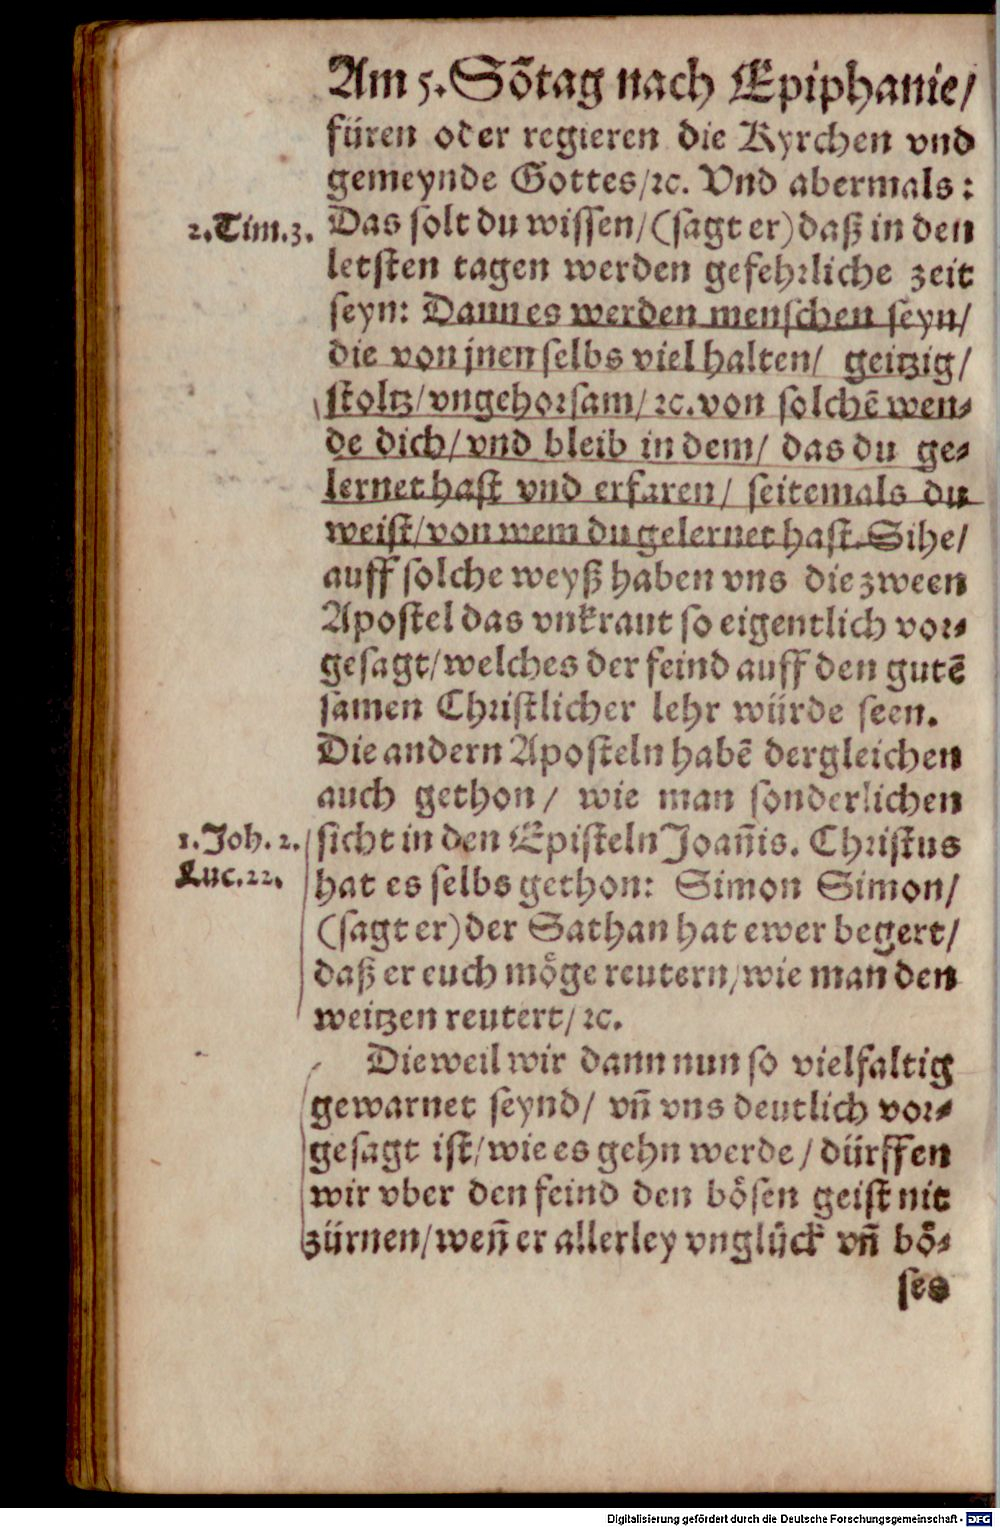 Am 5. Sõtag nach Epiphanie/
füren oder regieren die Kyrchen vnd
gemeynde Gottes/ꝛc. Vnd abermals:
2.Tim.3.
Das solt du wissen/(sagt er) daß in den
letsten tagen werden gefehrliche zeit
seyn: Dann es werden menschen seyn/
die von jnen selbs viel halten/ geitzig/
stoltz/vngehorsam/ꝛc. von solchẽ wen-
de dich/vnd bleib in dem/ das du ge-
lernet hast vnd erfaren/ seitemals du
weist/von wem du gelernet hast. Sihe/
auff solche weyß haben vns die zween
Apostel das vnkraut so eigentlich vor-
gesagt/welches der feind auff den gutẽ
samen Christlicher lehr würde seen.
Die andern Aposteln habẽ dergleichen
auch gethon/ wie man sonderlichen
1.Joh.2.
sicht in den Episteln Joañis. Christus
Luc.22.
hat es selbs gethon: Simon Simon/
(sagt er) der Sathan hat ewer begert/
daß er euch möge reutern/wie man den
weitzen reutert/ꝛc.
Dieweil wir dann nun so vielfaltig
gewarnet seynd/ vñ vns deutlich vor-
gesagt ist/wie es gehn werde/dürffen
wir vber den feind den bösen geist nit
zürnen/weñ er allerley vnglück vñ bö-
ses
Digitalisierung gefördert durch die Deutsche Forschungsgemeinschaft - DFG